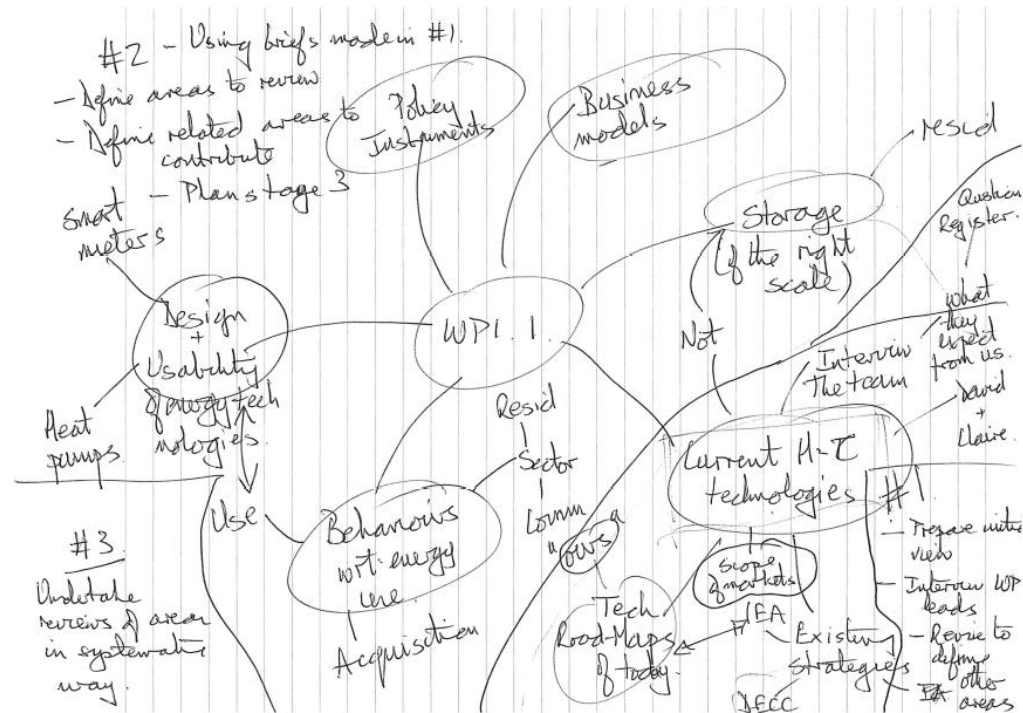 #2 - Using briefs made in #1.
- Define areas to review
- Define related areas to
contribute
- Plan stage 3
Policy
Instruments
Business
models
resid
Storage
(of the right
scale)
Question
Register.
What
they
expect
from us.
Smart
meters
Design
+
Usability
of energy tech
nologies.
Heat
pumps.
WP1.1.
Not
Interview
the team
David
+
Claire.
Current H-T
technologies
Resid
Sector
Comm
Use
Behaviours
wrt. energy
use
Acquisition
#3
Undertake
reviews of areas
in systematic
way.
Scope
of markets
Tech
Road-Maps
of today.
IEA
Existing
Strategies
DECC
#1
- Prepare
view
- Interview WP
leads
- Revise to
define
other
areas